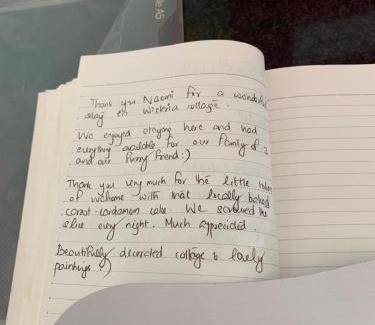 Thank you Naomi for a wonderful
stay in Wisteria cottage.
We enjoyed staying here and had
everything available for our family of 3
and our furry friend :)
Thank you very much for the little token
of welcome with that locally baked
carrot cardamom cake. We savoured the
slice every night. Much appreciated.
Beautifully decorated cottage & lovely
paintings :)